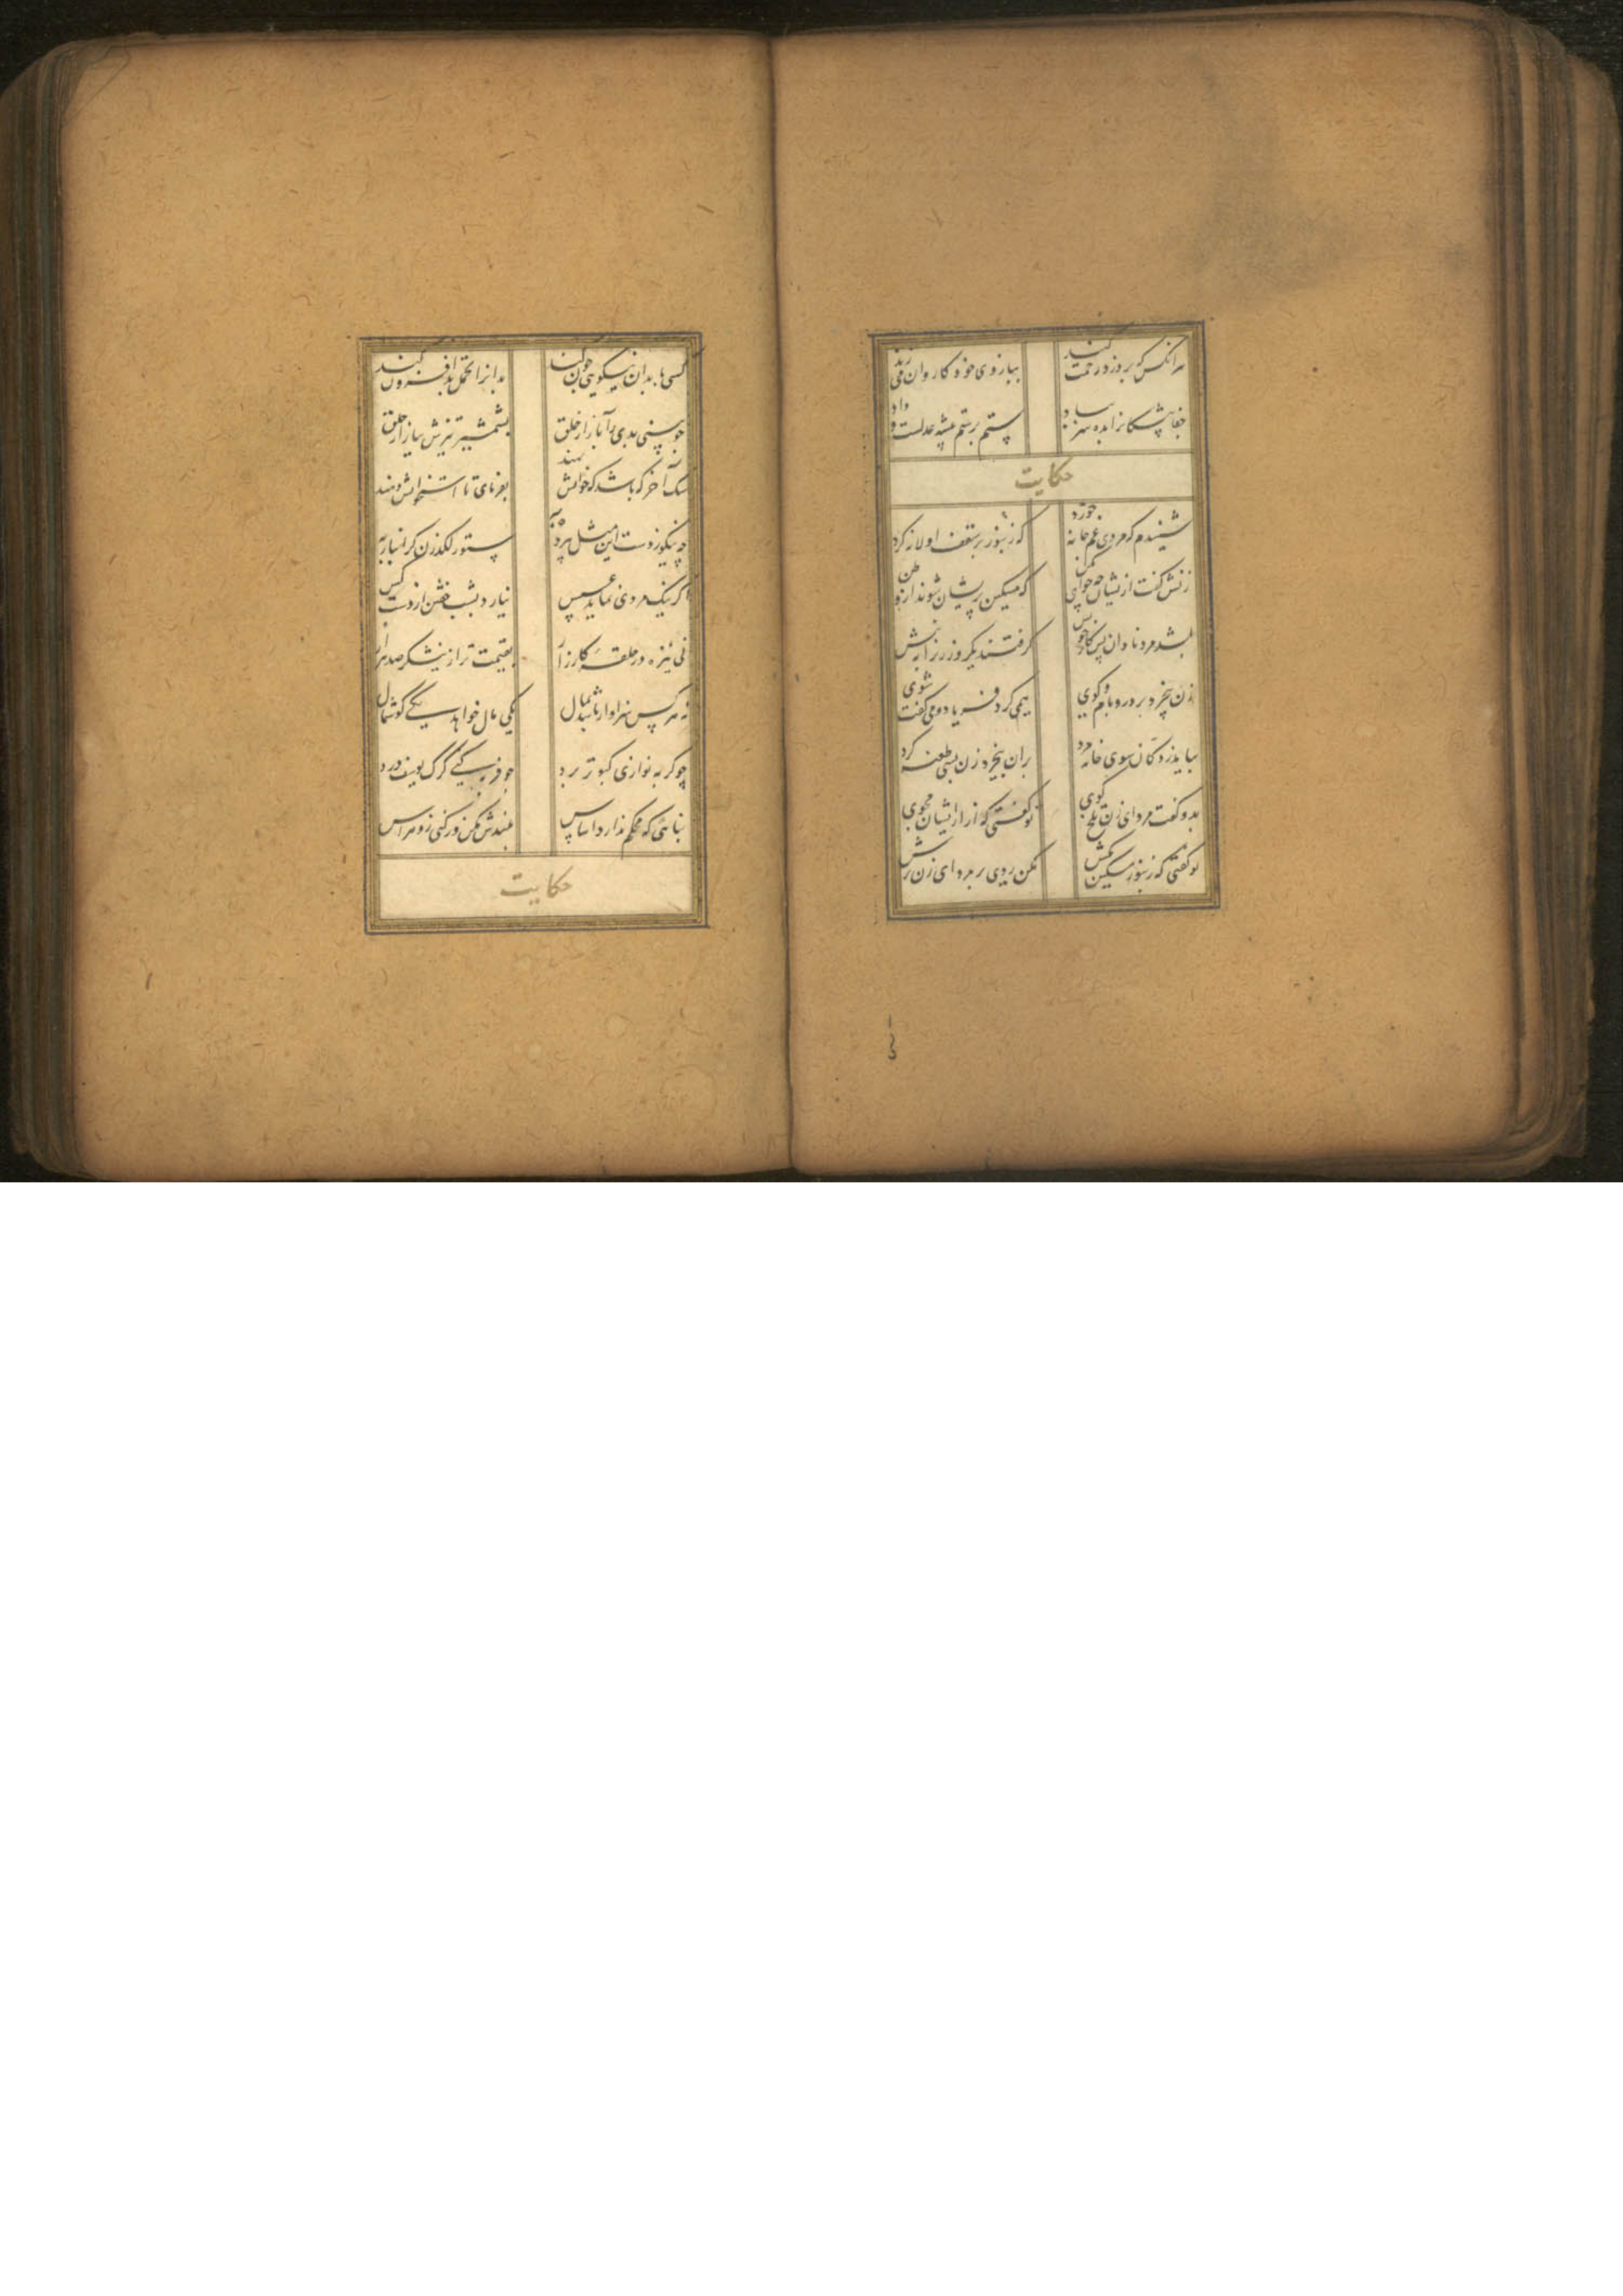 هر انکس که بر دزد رحمت کند
ببازوی خود کاروان می زند
جفا پیشکانرا بده سر بباد
ستم بر ستم پیشه عدلست و داد
حکایت
شنیدم که مردی غم خانه خورد
که زنبور بر سقف او لانه کرد
زنش گفت ازیشان چه خواهی مکن
که مسکین پریشان شوند از وطن
بشد مرد نادان پس کار خویش
گرفتند یکروز زن را به نیش
زن بیخرد بر در و بام و کوی
همی کرد فریاد و می گفت شوی
بیامد ز دکان سوی خانه مرد
بران بیخرد زن بسی طعنه کرد
بدو گفت مرد ای زن تلخ گوی
تو گفتی که آزار ازیشان مجوی
تو گفتی که زنبور مسکین مکش
مکن روی بر مرد ای زن ترش
کسی با بدان نیکویی چون کند
بدانرا تحمل بد افزون کند
چو بینی بدی را بازار خلق
بشمشیر تیزش بیازار حلق
سک آخر که باشد که خوانش نهند
بفرمای تا استخوانش دهند
چه نیکو زدست این مثل پیر ده
ستور لکدزن کرانبار به
اگر نیک مردی نماید عسس
نیارد بشب خفتن از دزد کس
نی نیزه در حلقه کارزار
بقیمت تر از نیشکر صد هزار
نه هر کس سزاوار باشد بمال
یکی مال خواهد یکی گوشمال
چو گربه نوازی کبوتر برد
چو فربه کنی گرگ یوسف درد
بنائی که محکم ندارد اساس
بلندش مکن ور کنی زو هراس
حکایت